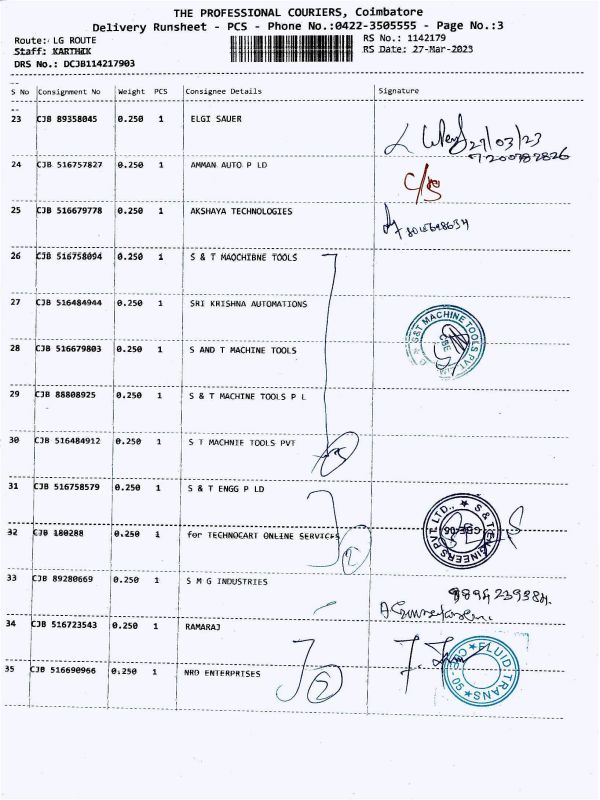 THE PROFESSIONAL COURIERS, Coimbatore
Delivery Runsheet - PCS - Phone No.:0422-3505555 - Page No.:3
Route: LG ROUTE
RS No.: 1142179
Staff: KARTHIK
RS Date: 27-Mar-2023
DRS No.: DCJB114217903
S No Consignment No Weight PCS Consignee Details Signature
23 CJB 89358045 0.250 1 ELGI SAUER
27/03/23
24 CJB 516757827 0.250 1 AMMAN AUTO P LD
25 CJB 516679778 0.250 1 AKSHAYA TECHNOLOGIES
26 CJB 516758094 0.250 1 S & T MAOCHIBNE TOOLS
27 CJB 516484944 0.250 1 SRI KRISHNA AUTOMATIONS
S&T MACHINE TOOLS PVT
CBE
28 CJB 516679803 0.250 1 S AND T MACHINE TOOLS
29 CJB 88808925 0.250 1 S & T MACHINE TOOLS P L
30 CJB 516484912 0.250 1 S T MACHNIE TOOLS PVT
31 CJB 516758579 0.250 1 S & T ENGG P LD
S & T ENGINEERS PVT LTD.,
32 CJB 180288 0.250 1 for TECHNOCART ONLINE SERVICES
33 CJB 89280669 0.250 1 S M G INDUSTRIES
34 CJB 516723543 0.250 1 RAMARAJ
35 CJB 516690966 0.250 1 NRO ENTERPRISES
FLUID TRANS